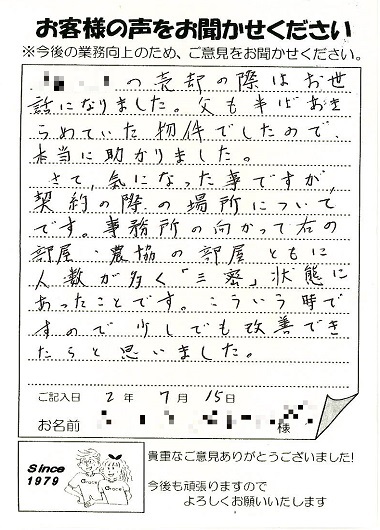 お客様の声をお聞かせください
※今後の業務向上のため、ご意見をお聞かせください。
の売却の際はお世
話になりました。父も半ばあき
らめていた物件でしたので、
本当に助かりました。
さて、気になった事ですが、
契約の際の場所について
です。事務所の向かって右の
部屋・農協の部屋ともに
人数が多く「三密」状態に
あったことです。こういう時で
すので少しでも改善でき
たらと思いました。
ご記入日 2年 7月 15日
お名前 様
Since
1979
Grace
Grace
貴重なご意見ありがとうございました!
今後も頑張りますので
よろしくお願いいたします